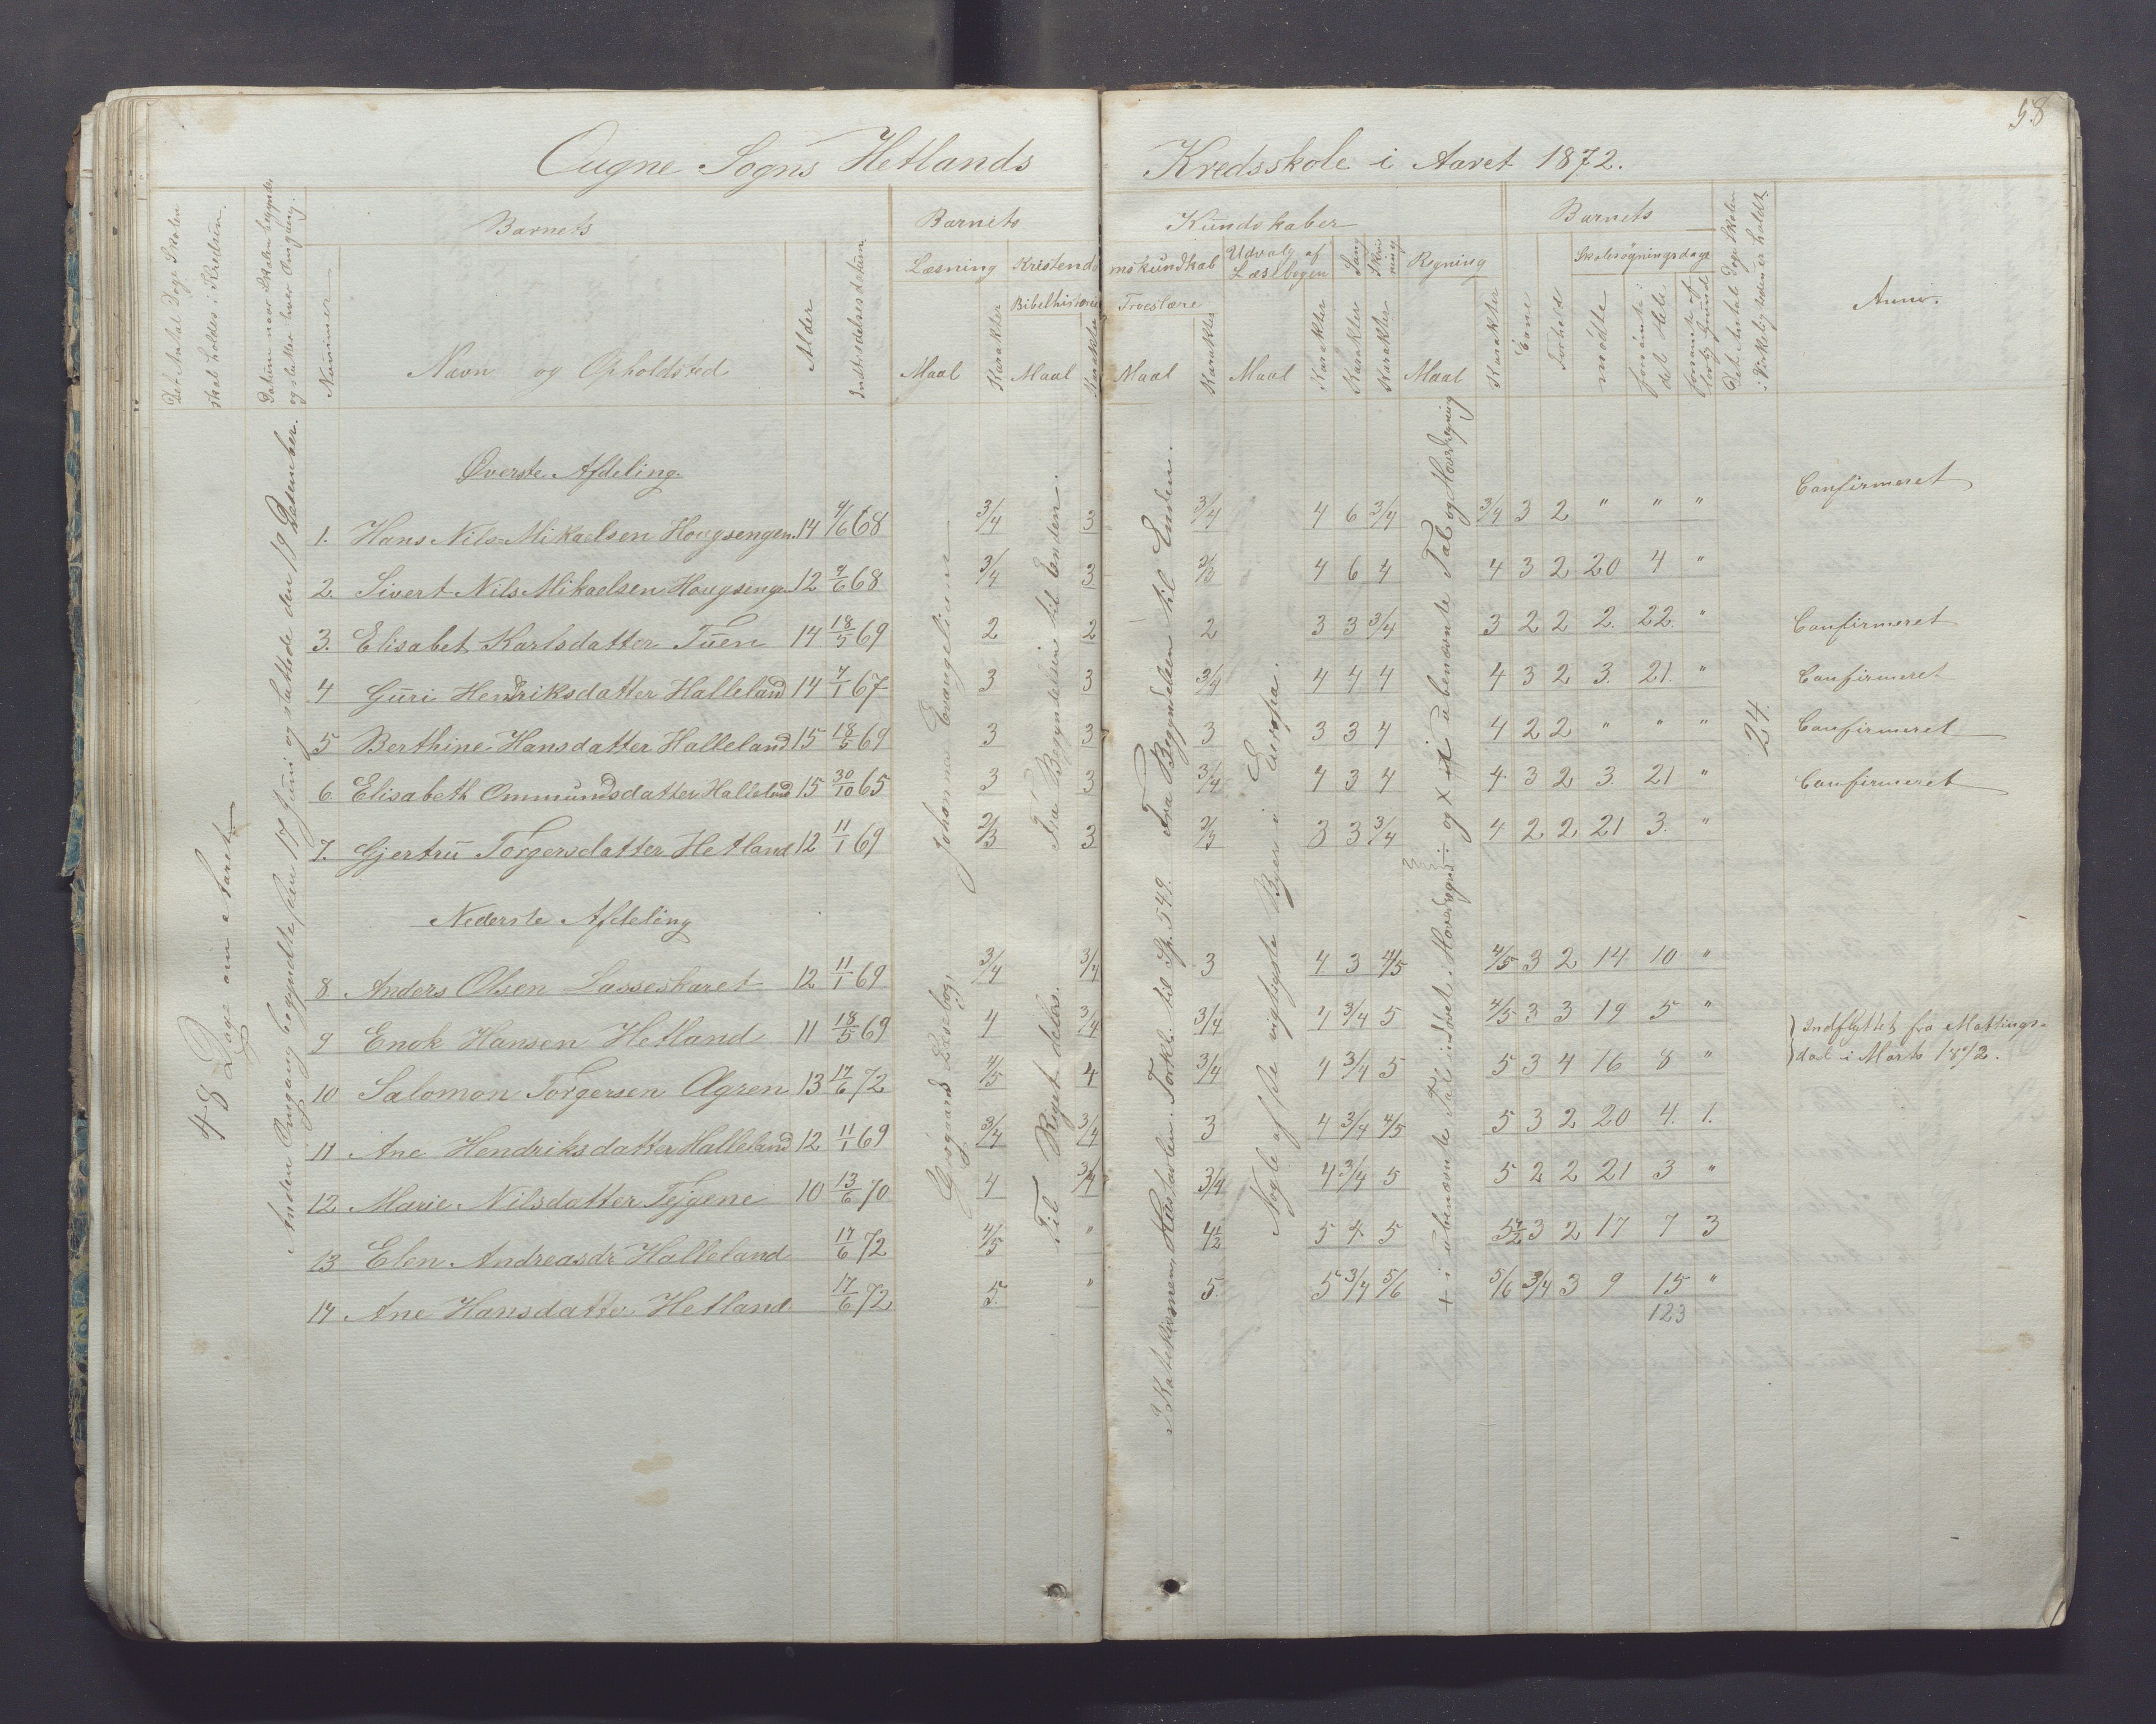 58
Ougne Sogns Hetlands Kredsskole i Aaret 1872.
Det Antal Dage Skolen skal holdes i Kredsen.
Datum naar Skolen begynder og slutter hver Omgang.
Nummer
Barnets
Navn og Opholdsted
Alder
Indtrædelsesdatum
Barnets Kundskaber
Læsning
Maal
Karakter
Kristendomskundskab
Bibelhistorie
Maal
Karakter
Troeslære
Maal
Karakter
Udvalg af Læsebogen
Maal
Karakter
Sang
Karakter
Skrivning
Karakter
Regning
Maal
Karakter
Barnets
Evne
Forhold
Skolesøgningsdage
mødte
forsømte i det Hele
forsømte af lovlig Grund
Det Antal Dage Skolen i Virkeligheden er holdt.
Anm.
48 Dage om Aaret
Anden Omgang begyndte den 17 Juni og sluttede den 19 Desember.
Johannes Evangelium
Fra Begyndelsen til Enden.
Fra Begyndelsen til Enden.
Nogle af de vigtigste Byer i Europa.
24.
Øverste Afdeling.
1. Hans Nils=Mikaelsen Hougsengen. 14 4/6 68 3/4 3 3/4 4 6 3/4 3/4 3 2 " " " Confirmeret
2. Sivert Nils Mikaelsen Hougsengen 12 4/6 68 3/4 3 2/3 4 6 4 4 3 2 20 4 "
3. Elisabet Karlsdatter Tuen 14 18/5 69 2 2 2 3 3 3/4 3 2 2 2. 22. " Confirmeret
4 Guri Hendriksdatter Halleland 14 7/1 67 3 3 3/4 4 4 4 4 3 2 3. 21. " Confirmeret
5 Berthine Hansdatter Halleland 15 18/5 69 3 3 3 3 3 4 4 2 2 " " " Confirmeret
6. Elisabeth Ommundsdatter Halleland 15 30/10 65 3 3 3/4 4 3 4 4 3 2 3. 21 " Confirmeret
7. Gjertru Torgersdatter Hetland 12 11/1 69 2/3 3 2/3 3 3 3/4 4 2 2 21 3. "
Nederste Afdeling
Læsebog
Til Riget deles.
I Katekismen, Hustavlen. Forkl. til Sp. 549.
+ i ubenævnte Tal
8. Anders Olsen Lasseskaret 12 11/1 69 3/4 3/4 3 4 3 4/5 4/5 3 2 14 10 "
9 Enok Hansen Hetland 11 18/5 69 4 3/4 3/4 4 3/4 5 4/5 3 3 19 5 " Indflyttet fra Mattings-
dal i Marts 1872.
10 Salomon Torgersen Ognen 13 17/6 72 4/5 4 3/4 4 3/4 5 5 3 4 16 8 "
11 Ane Hendriksdatter Halleland 12 11/1 69 3/4 3/4 3 4 3/4 4/5 5 3 2 20 4. 1.
12 Marie Nilsdatter Tejgene 10 13/6 70 4 3/4 3/4 4 3/4 5 5 2 2 21 3 "
13 Elen Andreasdr Halleland 17/6 72 4/5 " 4 1/2 5 4 5 5 1/2 3 2 17 7 3
14 Ane Hansdatter Hetland 17/6 72 5. " 5. 5 3/4 5/6 5/6 3/4 3 9 15 "
123